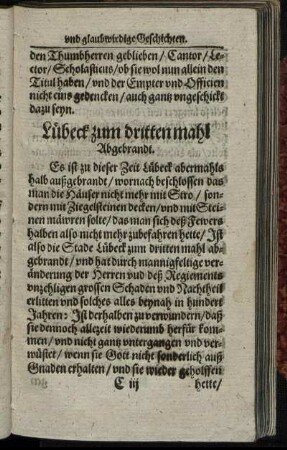 vnd glaubwirdige Geschichten.
den Thumbherren geblieben / Cantor / Le-
ctor / Scholasticus / ob sie wol nun allein den
Titul haben / vnd der Empter vnd Officien
nicht eins gedencken / auch gantz vngeschickt
dazu seyn.
Lübeck zum dritten mahl
Abgebrandt.
Es ist zu dieser Zeit Lübeck abermahls
halb außgebrandt / wornach beschlossen das
man die Häuser nicht mehr mit Stro / son-
dern mit Ziegelsteinen decken / vnd mit Stei-
nen mäwren solte / das man sich deß Fewers
halben also nicht mehr zubefahren hette / Ist
also die Stade Lübeck zum dritten mahl ab-
gebrandt / vnd hat durch mannigfeltige ver-
änderung der Herren vnd deß Regiements
vnzehligen grossen Schaden vnd Nachtheil
erlitten vnd solches alles beynah in hundert
Jahren: Ist derhalben zu verwundern / daß
sie dennoch allezeit wiederumb herfür kom-
men / vnd nicht gantz vntergangen vnd ver-
wüstet / wenn sie Gott nicht sonderlich auß
Gnaden erhalten / vnd sie wieder geholffen
C iij hette /